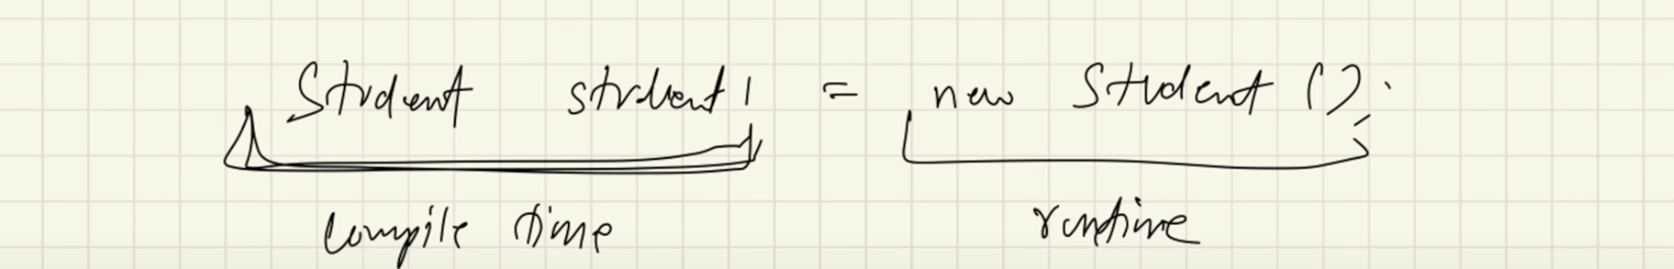 Student student1 = new Student();
compile time runtime